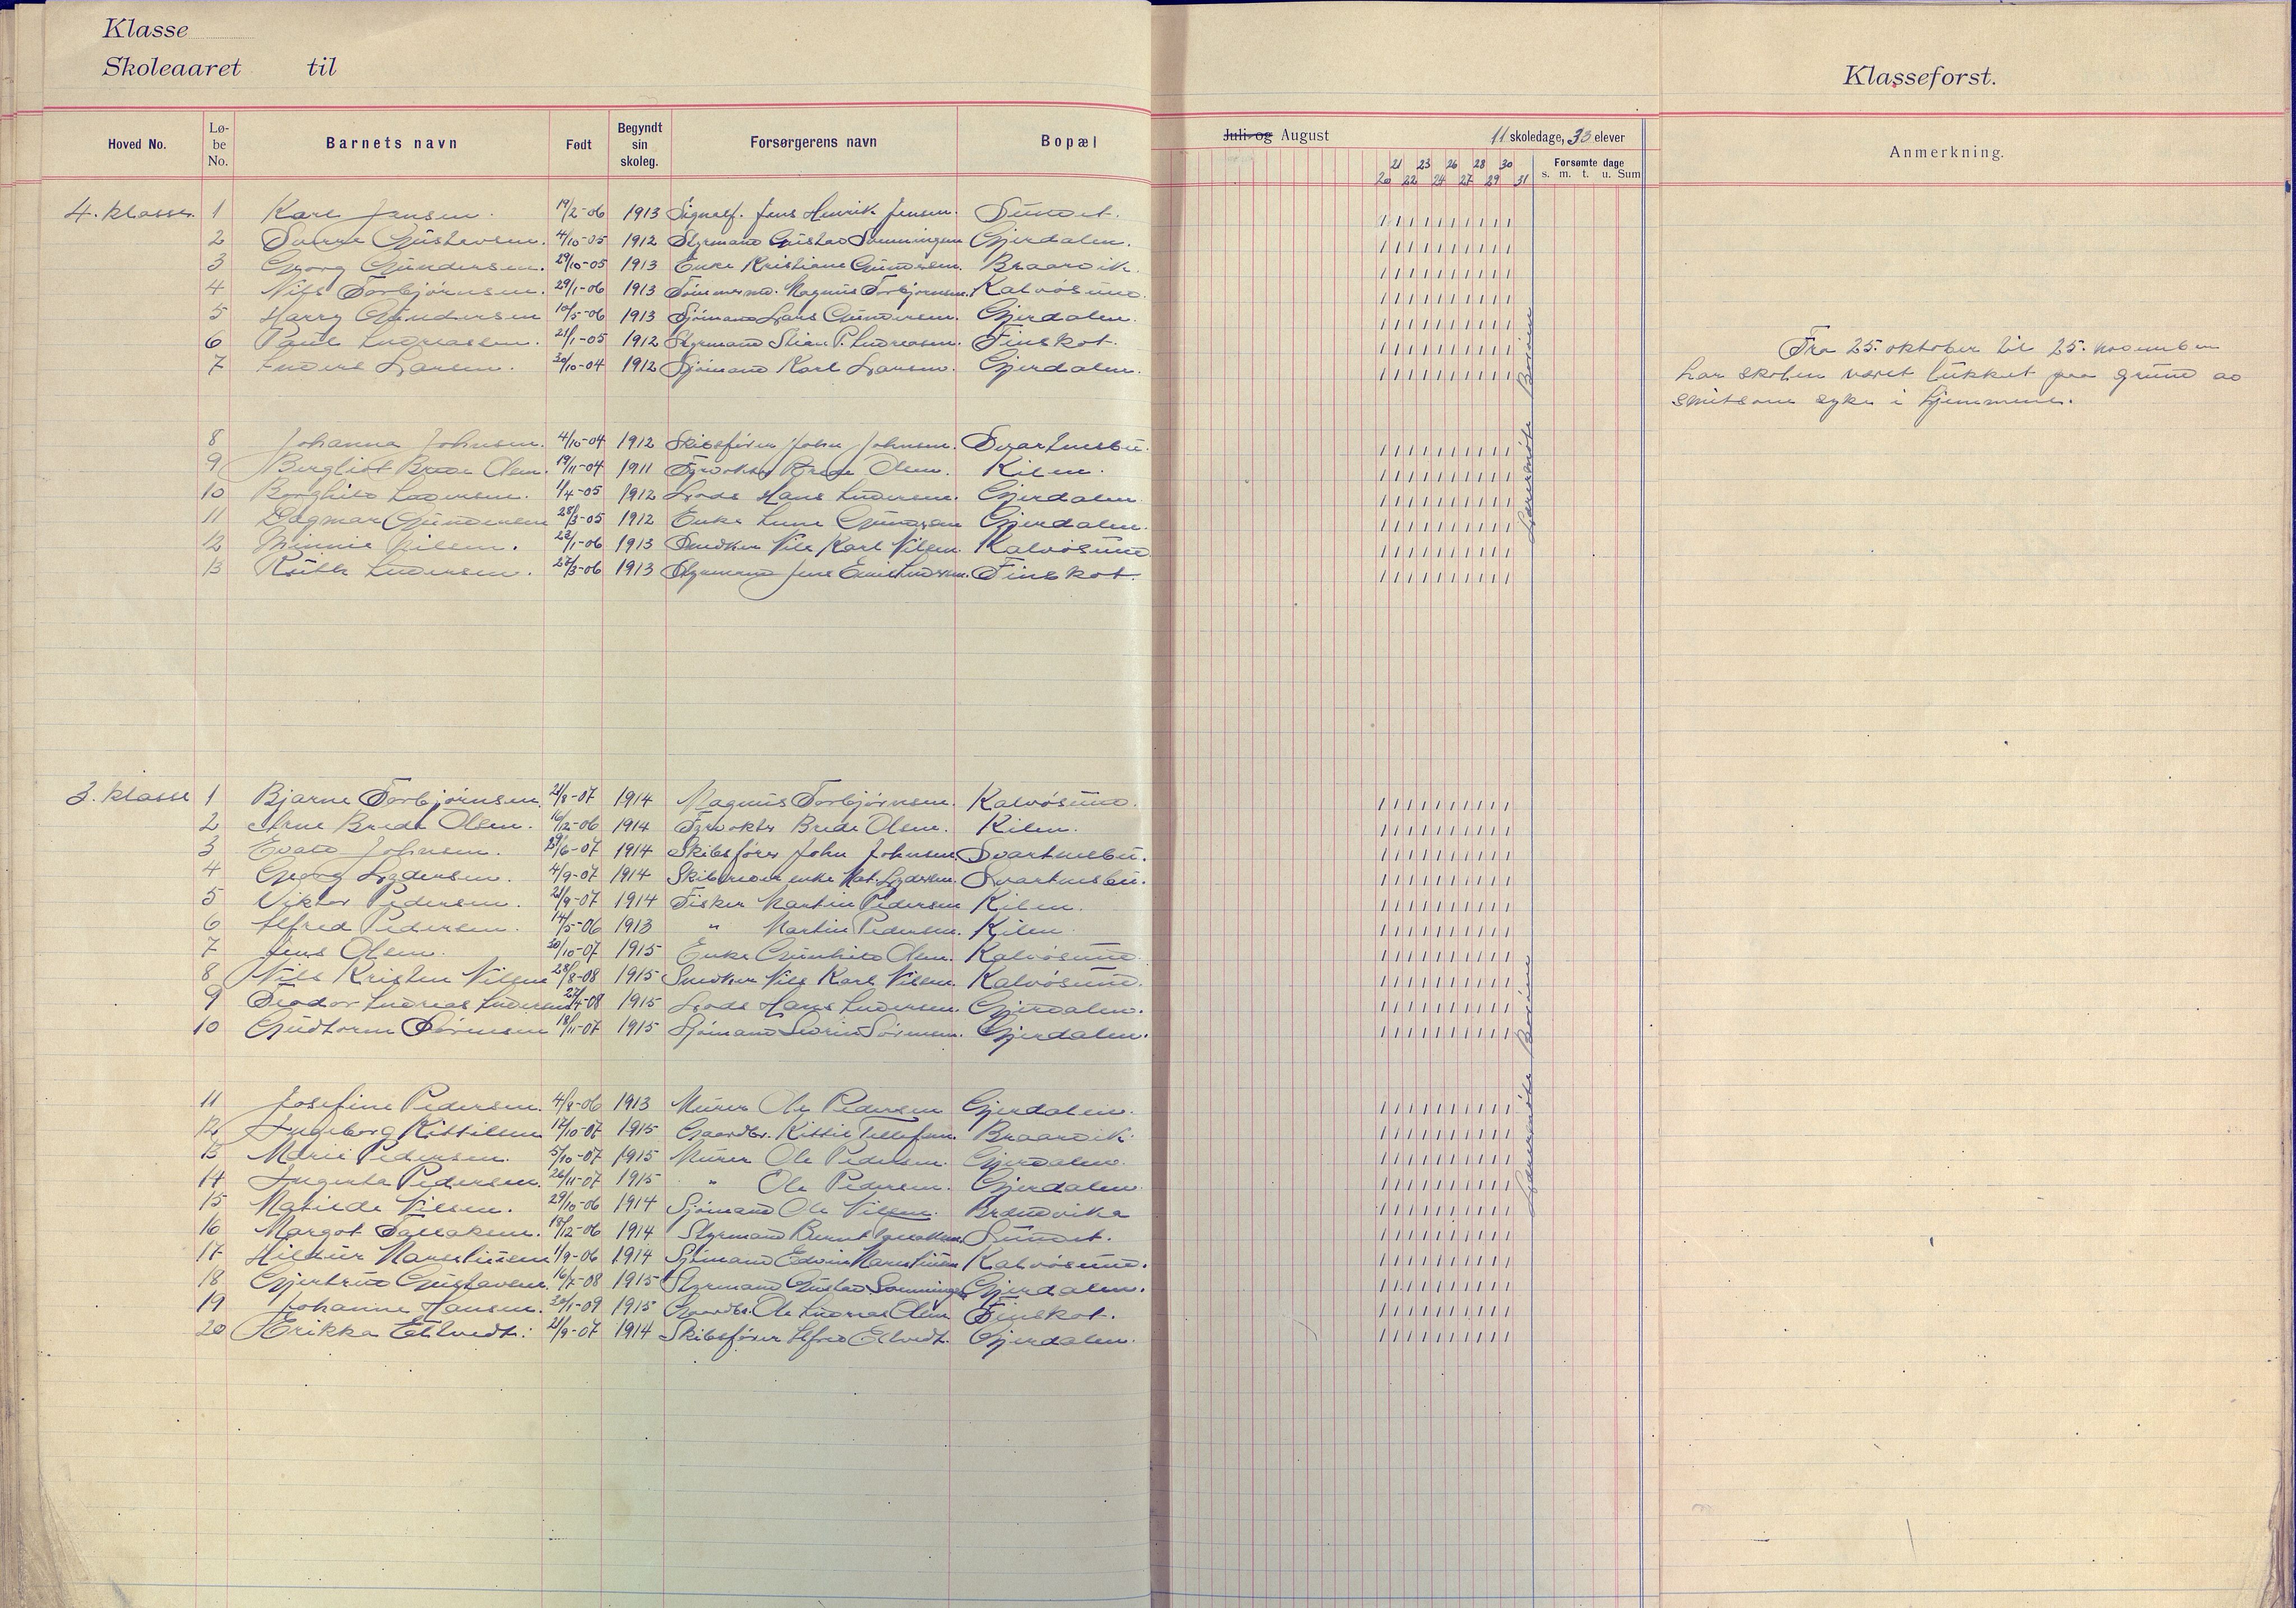 Klasse
Skoleaaret til
Klasseforst.
Hoved No. Lø-be No. Barnets navn Født Begyndt sin skoleg. Forsørgerens navn Bopæl
Juli og August 11 skoledage, 33 elever
Forsømte dage
s. m. t. u. Sum
Anmerkning.
21 23 26 28 30
20 22 24 27 29 31
4. klasse. 1 Karl Jensen. 19/2-06 1913 Signalf. Jens Henrik Jensen. Sundet.
2 Sverre Gustavsen. 4/10-05 1912 Styrmand Gustav Sønningsen Gjerdalen.
3 Georg Gundersen. 29/10-05 1913 Enke Kristiane Gundersen. Braarvik.
4 Nils Torbjørnsen. 29/1-06 1913 Tømmermd. Magnus Torbjørnsen. Kalvøsund.
5 Harry Gundersen 10/5-06 1913 Sjømand Lars Gundersen. Gjerdalen.
6 Paul Andreassen. 21/1-05 1912 Styrmand Stian P. Andreasen. Finskot.
7 Anders Larsen. 30/10-04 1912 Sjømand Karl Larsen. Gjerdalen.
8 Johanna Johnsen. 4/10-04 1912 Skibsfører John Johnsen. Svartnesbu.
9 Bergliot Brede Olsen. 19/11-04 1911 Fyrvokter Brede Olsen. Kilen.
10 Borghild Andersen. 1/4-05 1912 Lods Hans Andersen. Gjerdalen
11 Dagmar Gundersen 28/3-05 1912 Enke Anne Gundersen Gjerdalen.
12 Minnie Nilsen. 22/1-06 1913 Snedker Nils Karl Nilsen Kalvøsund
13 Ruth Andersen. 27/3-06 1913 Styrmand Jens Emil Andersen. Finskot.
Lærermøte Bosvine
Fra 25. oktober til 25. november
har skolen været lukket paa grund av
smitsom syke i hjemmene.
3. klasse 1 Bjarne Torbjørnsen. 21/8-07 1914 Magnus Torbjørnsen. Kalvøsund.
2 Arne Brede Olsen. 16/12-06 1914 Fyrvokter Brede Olsen. Kilen.
3 Evald Johnsen. 29/6-07 1914 Skibsfører John Johnsen Svartnesbu.
4 Georg Lydersen. 4/9-07 1914 Skibsreder enke Mat. Lydersen. Svartnesbu.
5 Viktor Pedersen. 21/9-07 1914 Fisker Martin Pedersen Kilen.
6 Alfred Pedersen. 14/5-06 1913 " Martin Pedersen. Kilen
7 Jens Olsen. 20/10-07 1915 Enke Gunhild Olsen. Kalvøsund
8 Nils Kristen Nilsen 28/8-08 1915 Snedker Nils Karl Nilsen. Kalvøsund.
9 Teodor Andreas Andersen 27/4-08 1915 Lods Hans Andersen. Gjerdalen.
10 Gudtorm Sørensen 18/11-07 1915 Sjømand Severin Sørensen. Gjerdalen.
11 Josefine Pedersen. 4/8-06 1913 Murer Ole Pedersen Gjerdalen.
12 Ingeborg Kittilsen 12/10-07 1915 Gaardbr. Kittil Tellefsen. Braarvik.
13 Marie Pedersen. 5/10-07 1915 Murer Ole Pedersen. Gjerdalen.
14 Ingerta Pedersen. 26/11-07 1915 " Ole Pedersen. Gjerdalen
15 Matilde Nilsen. 29/10-06 1914 Sjømand Ole Nilsen. Brændvika
16 Margot Tallaksen. 18/12-06 1914 Styrmand Bernt Tallaksen Sundet.
17 Hildur Marentiusen 1/9-06 1914 Sjømand Edvin Marentiusen Kalvøsund.
18 Gjertrud Gustavsen 16/7-08 1915 Styrmand Gustav Sønningsen Gjerdalen.
19 Johanne Hansen. 30/1-09 1915 Gaardbr. Ole Andreas Olsen Finskot.
20 Erikka Ellivedt. 21/9-07 1914 Skibsfører Alfred Ellivedt. Gjerdalen.